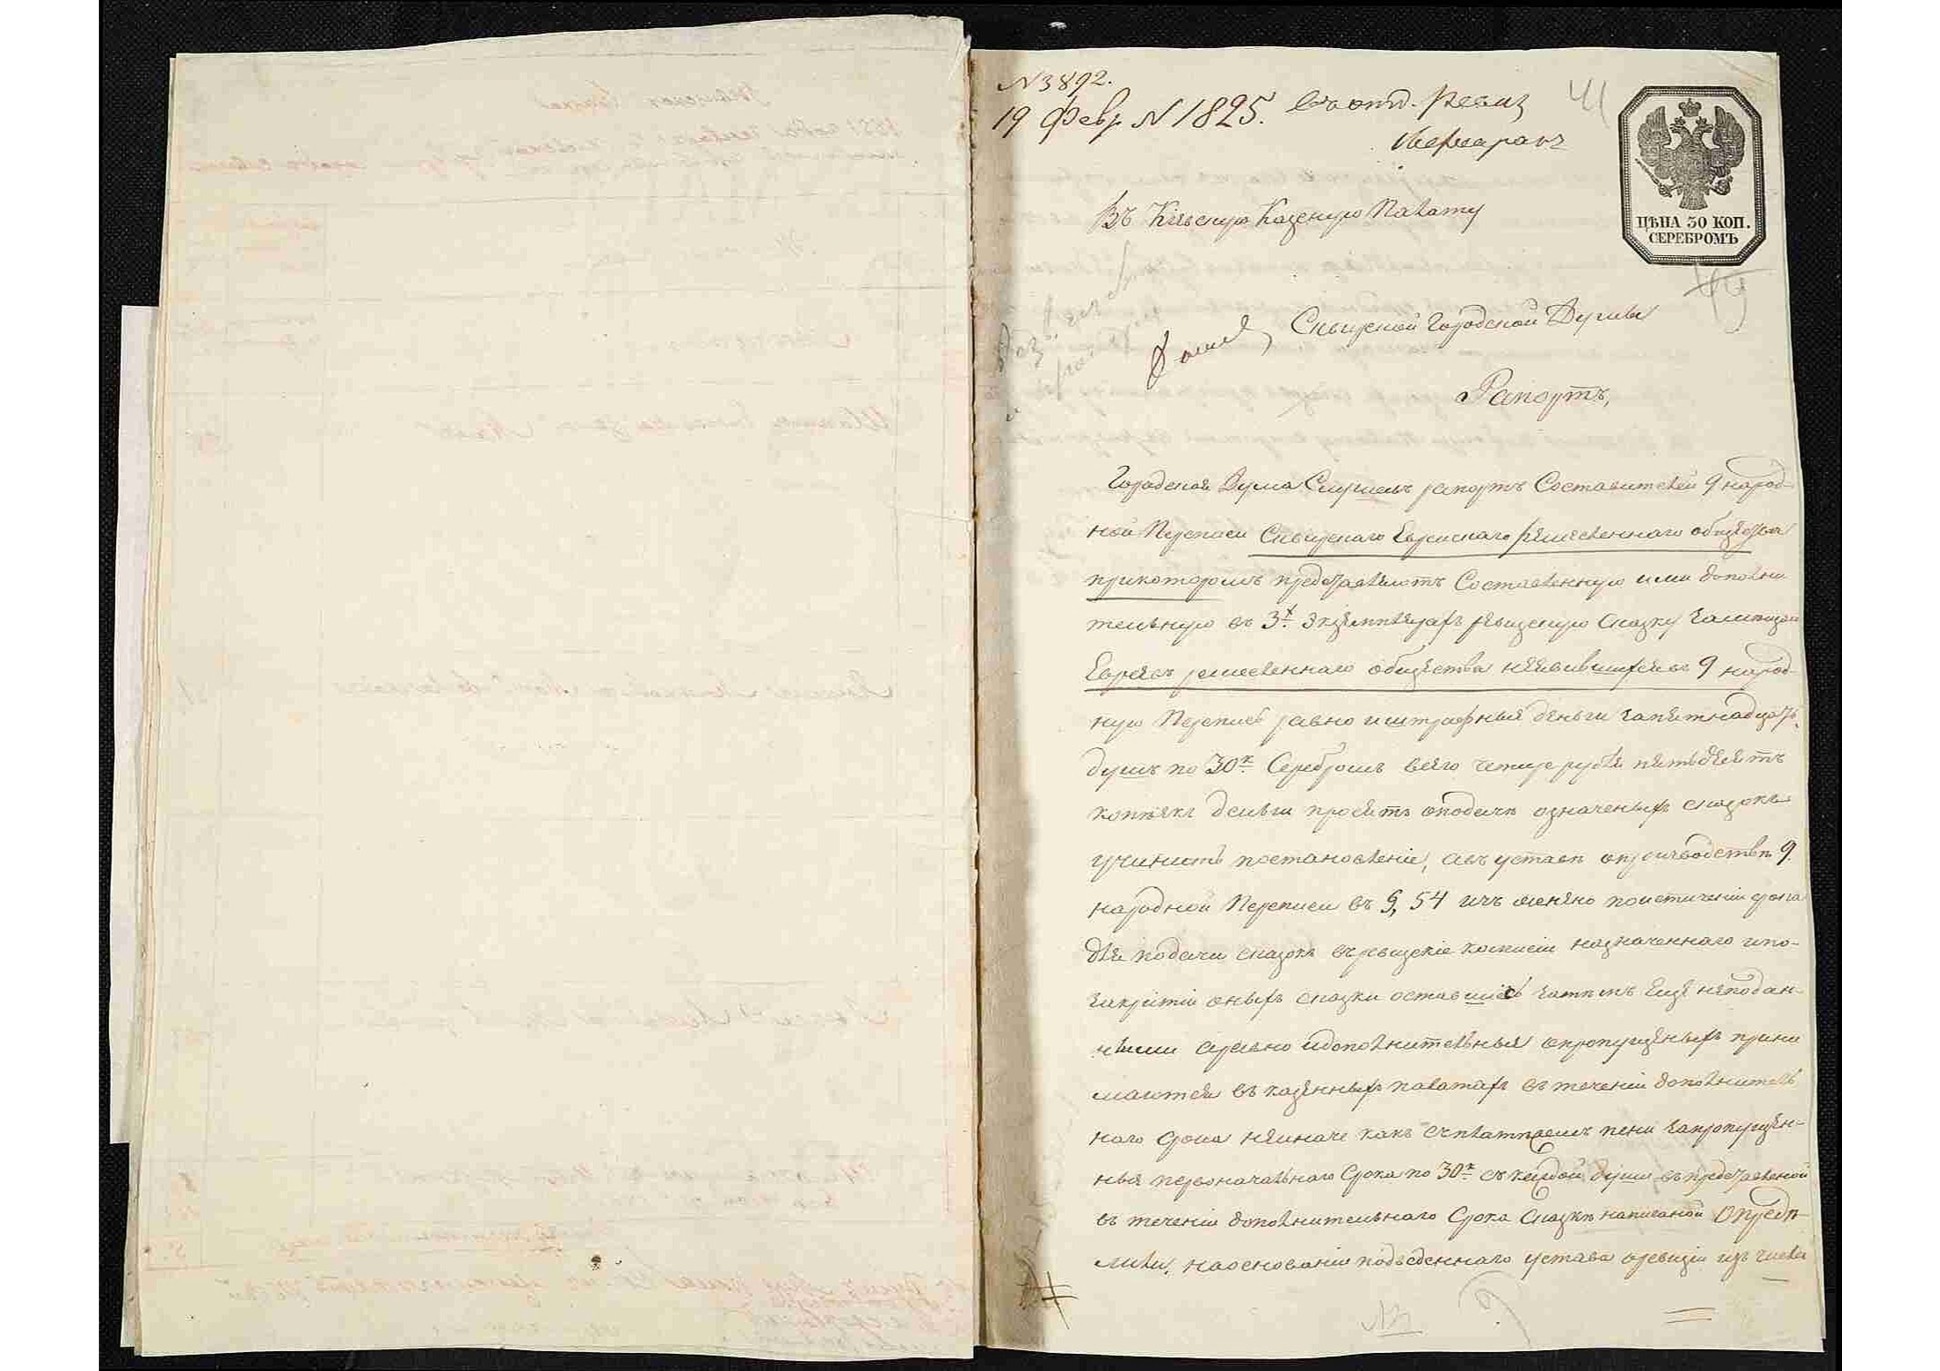 N 3892.
19 Февр N 1825. въ отд. Ревиз
41
ЦѢНА 30 КОП.
СЕРЕБРОМЪ
Въ Кіевскую Казенную Палату
Сквирской Городской Думы
Рапортъ,
Городская Дума Слушавъ рапортъ Составителей 9 народ-
ной Переписи Сквирскаго Еврейскаго ремесленнаго общества
прикоторомъ представляютъ Составленную ими дополни
тельную въ 3х. Экземплярахъ ревизскую сказку
Евреевъ ремесленнаго общества неявившихся въ 9 народ-
ную Перепись равно и штрафныя деньги запятнадцать
душъ по 30к. Серебромъ всего четыре рубля пятьдесятъ
копѣекъ деньги просятъ оподачи означеныхъ сказокъ
учинить постановленіе, а въ уставѣ опроизводствѣ 9
народной Переписи въ §, 54 имянено поистеченіи срока
для подачи сказокъ въ ревизскіе комисіи назначеннаго ипо-
закрытіи оныхъ сказки оставшіеся затѣмъ Ещё неподан-
ными аравно идополнительныя опропущеныхъ прини
маются въ казенныхъ палатахъ въ теченіи дополнитель
наго срока неиначе какъ съплатѣжемъ пени запропущен-
ныя первоначальнаго Срока по 30к. съ каждой души въ представленой
въ теченіи дополнительнаго Срока Сказкѣ написаной Опредѣ-
лили, наоснованіи подведеннаго устава оревизіи изъ числа